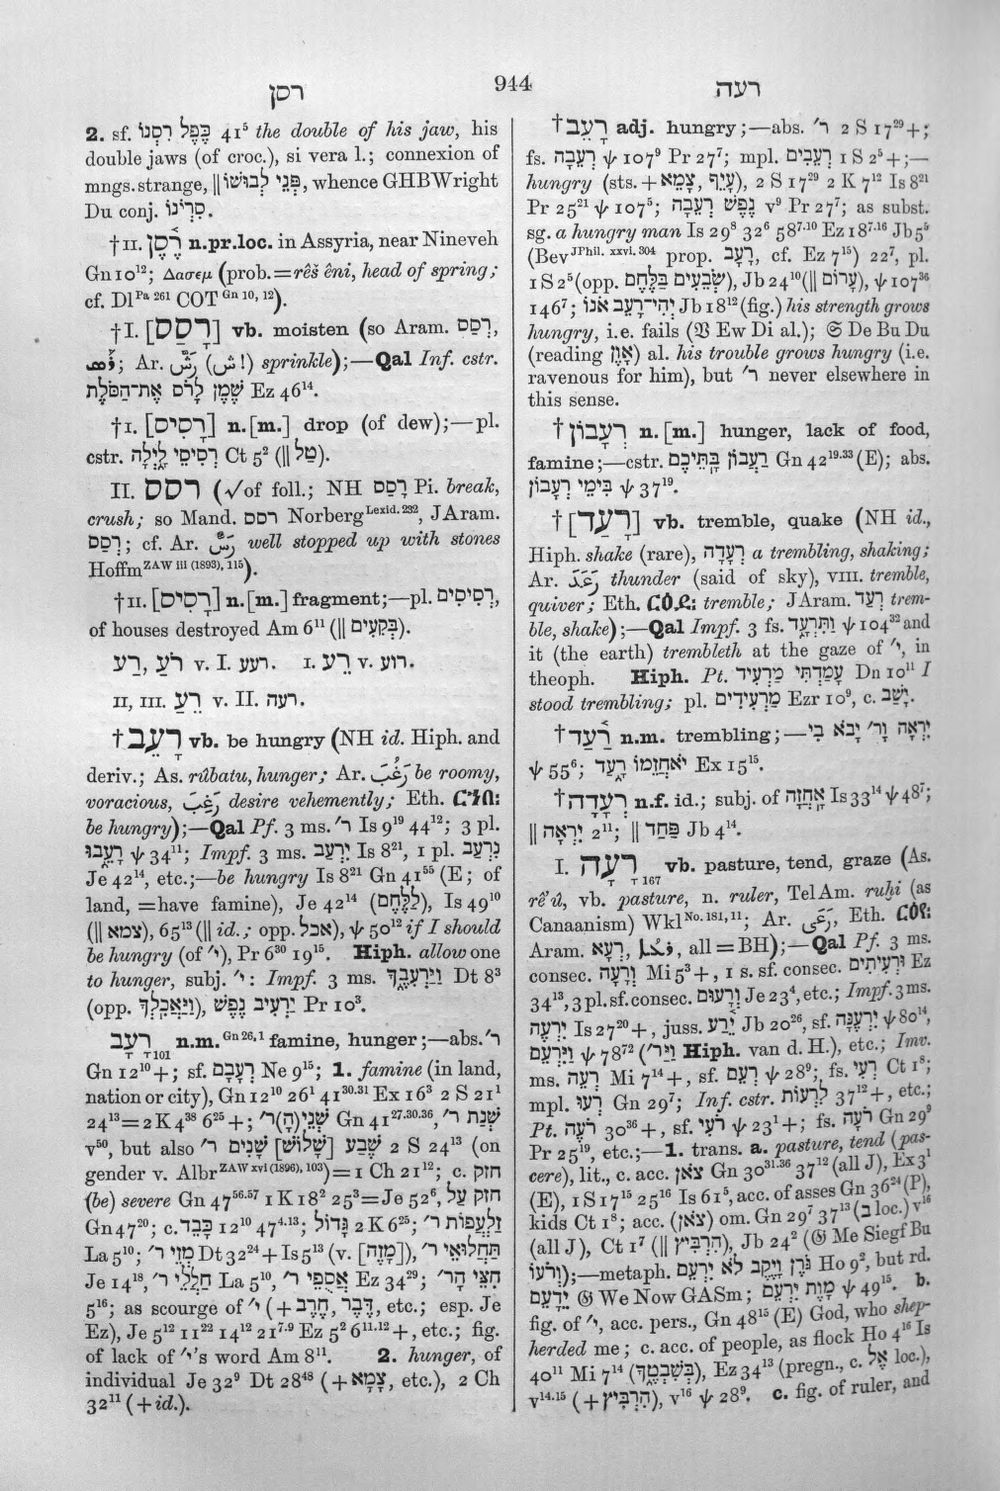 רסן 944 רעה
2. sf. כֶּפֶל רִסְנוֹ 41⁵ the double of his jaw, his
double jaws (of croc.), si vera l.; connexion of
mngs. strange, ‖ פְּנֵי לְבוּשׁוֹ, whence GHBWright
Du conj. סִרְיֹנוֹ.
†II. רֶ֫סֶן n.pr.loc. in Assyria, near Nineveh
Gn 10¹²; Δασεμ (prob. = rêš êni, head of spring;
cf. Dl Pa 261 COT Gn 10, 12).
†I. [רָסַס] vb. moisten (so Aram. רְסַס,
; Ar. رَشَّ (ش !) sprinkle);—Qal Inf. cstr.
שֶׁמֶן לָרֹס אֶת־הַסֹּלֶת Ez 46¹⁴.
†I. [רָסִיס] n.[m.] drop (of dew);—pl.
cstr. רְסִיסֵי לָ֑יְלָה Ct 5² (‖ טַל).
II. רסס (√ of foll.; NH רָסַס Pi. break,
crush; so Mand. רסס Norberg Lexid. 232, JAram.
רְסַס; cf. Ar. well stopped up with stones
Hoffm ZAW iii (1893), 115).
†II. [רָסִיס] n.[m.] fragment;—pl. רְסִיסִים,
of houses destroyed Am 6¹¹ (‖ בְּקִעִים).
רַע, רֹעַ v. I. רעע. I. רֵעַ v. רוע.
II, III. רֵעַ v. II. רעה.
†רָעֵב vb. be hungry (NH id. Hiph. and
deriv.; As. rûbatu, hunger; Ar. رَغُبَ be roomy,
voracious, رَغِبَ desire vehemently; Eth. ርኅበ፡
be hungry);—Qal Pf. 3 ms. ר׳ Is 9¹⁹ 44¹²; 3 pl.
רָעֵ֑בוּ ψ 34¹¹; Impf. 3 ms. יִרְעַב Is 8²¹, 1 pl. נִרְעַב
Je 42¹⁴, etc.;—be hungry Is 8²¹ Gn 41⁵⁵ (E; of
land, = have famine), Je 42¹⁴ (לַלֶּחֶם), Is 49¹⁰
(‖ צמא), 65¹³ (‖ id.; opp. אכל), ψ 50¹² if I should
be hungry (of י׳), Pr 6³⁰ 19¹⁵. Hiph. allow one
to hunger, subj. י׳: Impf. 3 ms. וַיַּרְעִבֶ֑ךָ Dt 8³
(opp. וַיַּאֲכִֽלְךָ), יַרְעִיב נֶפֶשׁ Pr 10³.
רָעָב₁₀₁ n.m. Gn 26, 1 famine, hunger;—abs. ר׳
Gn 12¹⁰ +; sf. רְעָבָם Ne 9¹⁵; 1. famine (in land,
nation or city), Gn 12¹⁰ 26¹ 41³⁰·³¹ Ex 16³ 2 S 21¹
24¹³ = 2 K 4³⁸ 6²⁵ +; שְׁנֵי(הָ)ר׳ Gn 41²⁷·³⁰·³⁶, שְׁנַת ר׳
v⁵⁰, but also שֶׁבַע [שָׁלוֹשׁ] שָׁנִים ר׳ 2 S 24¹³ (on
gender v. Albr ZAW xvi (1896), 103) = 1 Ch 21¹²; c. חזק
(be) severe Gn 47⁵⁶·⁵⁷ 1 K 18² 25³ = Je 52⁶, חזק עַל
Gn 47²⁰; c. כָּבֵד 12¹⁰ 47⁴·¹³; גָּדוֹל 2 K 6²⁵; זַלְעֲפוֹת ר׳
La 5¹⁰; מְזֵי ר׳ Dt 32²⁴ + Is 5¹³ (v. [מָזֶה]), תַּחֲלוּאֵי ר׳
Je 14¹⁸, חַֽלְלֵי ר׳ La 5¹⁰, אֲסֻפֵי ר׳ Ez 34²⁹; חִצֵּי הָר׳
5¹⁶; as scourge of י׳ (+ דֶּבֶר, חֶרֶב, etc.; esp. Je
Ez), Je 5¹² 11²² 14¹² 21⁷·⁹ Ez 5² 6¹¹·¹² +, etc.; fig.
of lack of י׳'s word Am 8¹¹. 2. hunger, of
individual Je 32⁹ Dt 28⁴⁸ (+ צָמָא, etc.), 2 Ch
32¹¹ (+ id.).
†רָעֵב adj. hungry;—abs. ר׳ 2 S 17²⁹ +;
fs. רְעֵבָה ψ 107⁹ Pr 27⁷; mpl. רְעֵבִים 1 S 2⁵ +;—
hungry (sts. + צָמֵא, עָיֵף), 2 S 17²⁹ 2 K 7¹² Is 8²¹
Pr 25²¹ ψ 107⁵; נֶפֶשׁ רְעֵבָה v⁹ Pr 27⁷; as subst.
sg. a hungry man Is 29⁸ 32⁶ 58⁷·¹⁰ Ez 18⁷·¹⁶ Jb 5⁵
(Bev JPhil. xxvi. 304 prop. רָעָב, cf. Ez 7¹⁵) 22⁷, pl.
1 S 2⁵ (opp. שְׂבֵעִים בַּלֶּחֶם), Jb 24¹⁰ (‖ עָרוֹם), ψ 107³⁶
146⁷; יְהִי־רָעֵב אֹנוֹ Jb 18¹² (fig.) his strength grows
hungry, i.e. fails (𝔙 Ew Di al.); 𝔖 De Bu Du
(reading אָוֶן) al. his trouble grows hungry (i.e.
ravenous for him), but ר׳ never elsewhere in
this sense.
†רְעָבוֹן n. [m.] hunger, lack of food,
famine;—cstr. רַעֲבוֹן בָּתֵּיכֶם Gn 42¹⁹·³³ (E); abs.
בִּימֵי רְעָבוֹן ψ 37¹⁹.
†[רָעַד] vb. tremble, quake (NH id.,
Hiph. shake (rare), רְעָדָה a trembling, shaking;
Ar. رَعَدَ thunder (said of sky), VIII. tremble,
quiver; Eth. ርዕደ፡ tremble; JAram. רְעַד trem-
ble, shake);—Qal Impf. 3 fs. וַתִּרְעָ֑ד ψ 104³² and
it (the earth) trembleth at the gaze of י׳, in
theoph. Hiph. Pt. עָמַדְתִּי מַרְעִיד Dn 10¹¹ I
stood trembling; pl. מַרְעִידִים Ezr 10⁹, c. יָשַׁב.
†רַ֫עַד n.m. trembling;—יִרְאָה וָר׳ יָבֹא בִי
ψ 55⁶; יֹאחֲזֵמוֹ רָ֑עַד Ex 15¹⁵.
†רְעָדָה n.f. id.; subj. of אָֽחֲזָה Is 33¹⁴ ψ 48⁷;
‖ יִרְאָה 2¹¹; ‖ פַּחַד Jb 4¹⁴.
I. רָעָה₁₆₇ vb. pasture, tend, graze (As.
rê'û, vb. pasture, n. ruler, TelAm. ruḫi (as
Canaanism) Wkl No. 181, 11; Ar. رَعَى, Eth. ርዕየ፡
Aram. רְעָא, , all = BH);—Qal Pf. 3 ms.
consec. וְרָעָה Mi 5³ +, 1 s. sf. consec. וּרְעִיתִים Ez
34¹³, 3 pl. sf. consec. וְרָעוּם Je 23⁴, etc.; Impf. 3 ms.
יִרְעֶה Is 27²⁰ +, juss. יֵרַע Jb 20²⁶, sf. יִרְעֶנָּה ψ 80¹⁴,
וַיִּרְעֵם ψ 78⁷² (וַיַּר׳ Hiph. van d. H.), etc.; Imv.
ms. רְעֵה Mi 7¹⁴ +, sf. רְעֵם ψ 28⁹; fs. רְעִי Ct 1⁸;
mpl. רְעוּ Gn 29⁷; Inf. cstr. לִרְעוֹת 37¹² +, etc.;
Pt. רֹעֶה 30³⁶ +, sf. רֹעִי ψ 23¹ +; fs. רֹעָה Gn 29⁹
Pr 25¹⁹, etc.;—1. trans. a. pasture, tend (pas-
cere), lit., c. acc. צֹאן Gn 30³¹·³⁶ 37¹² (all J), Ex 3¹
(E), 1 S 17¹⁵ 25¹⁶ Is 61⁵, acc. of asses Gn 36²⁴ (P),
kids Ct 1⁸; acc. (צֹאן) om. Gn 29⁷ 37¹³ (בְּ loc.) v¹⁶
(all J), Ct 1⁷ (‖ הִרְבִּיץ), Jb 24² (𝔊 Me Siegf Bu
וְרֹעוֹ);—metaph. גֹּרֶן וָיֶקֶב לֹא יִרְעֵם Ho 9², but rd.
יֵדָעֵם 𝔊 We Now GASm; מָוֶת יִרְעֵם ψ 49¹⁵. b.
fig. of י׳, acc. pers., Gn 48¹⁵ (E) God, who shep-
herded me; c. acc. of people, as flock Ho 4¹⁶ Is
40¹¹ Mi 7¹⁴ (בְּשִׁבְטֶךָ), Ez 34¹³ (pregn., c. אֶל loc.),
v¹⁴·¹⁵ (+ הִרְבִּיץ), v¹⁶ ψ 28⁹. c. fig. of ruler, and